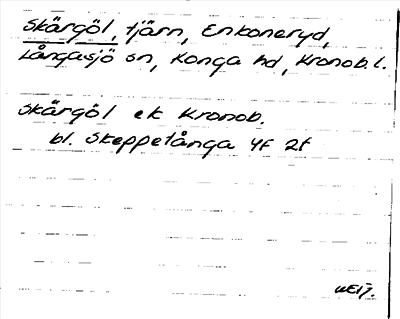 Skärgöl, tjärn, Enkoneryd,
Långasjö sn, Konga hd, Kronob. l.
Skärgöl ek Kronob.
bl. Skeppetånga 4f 2f